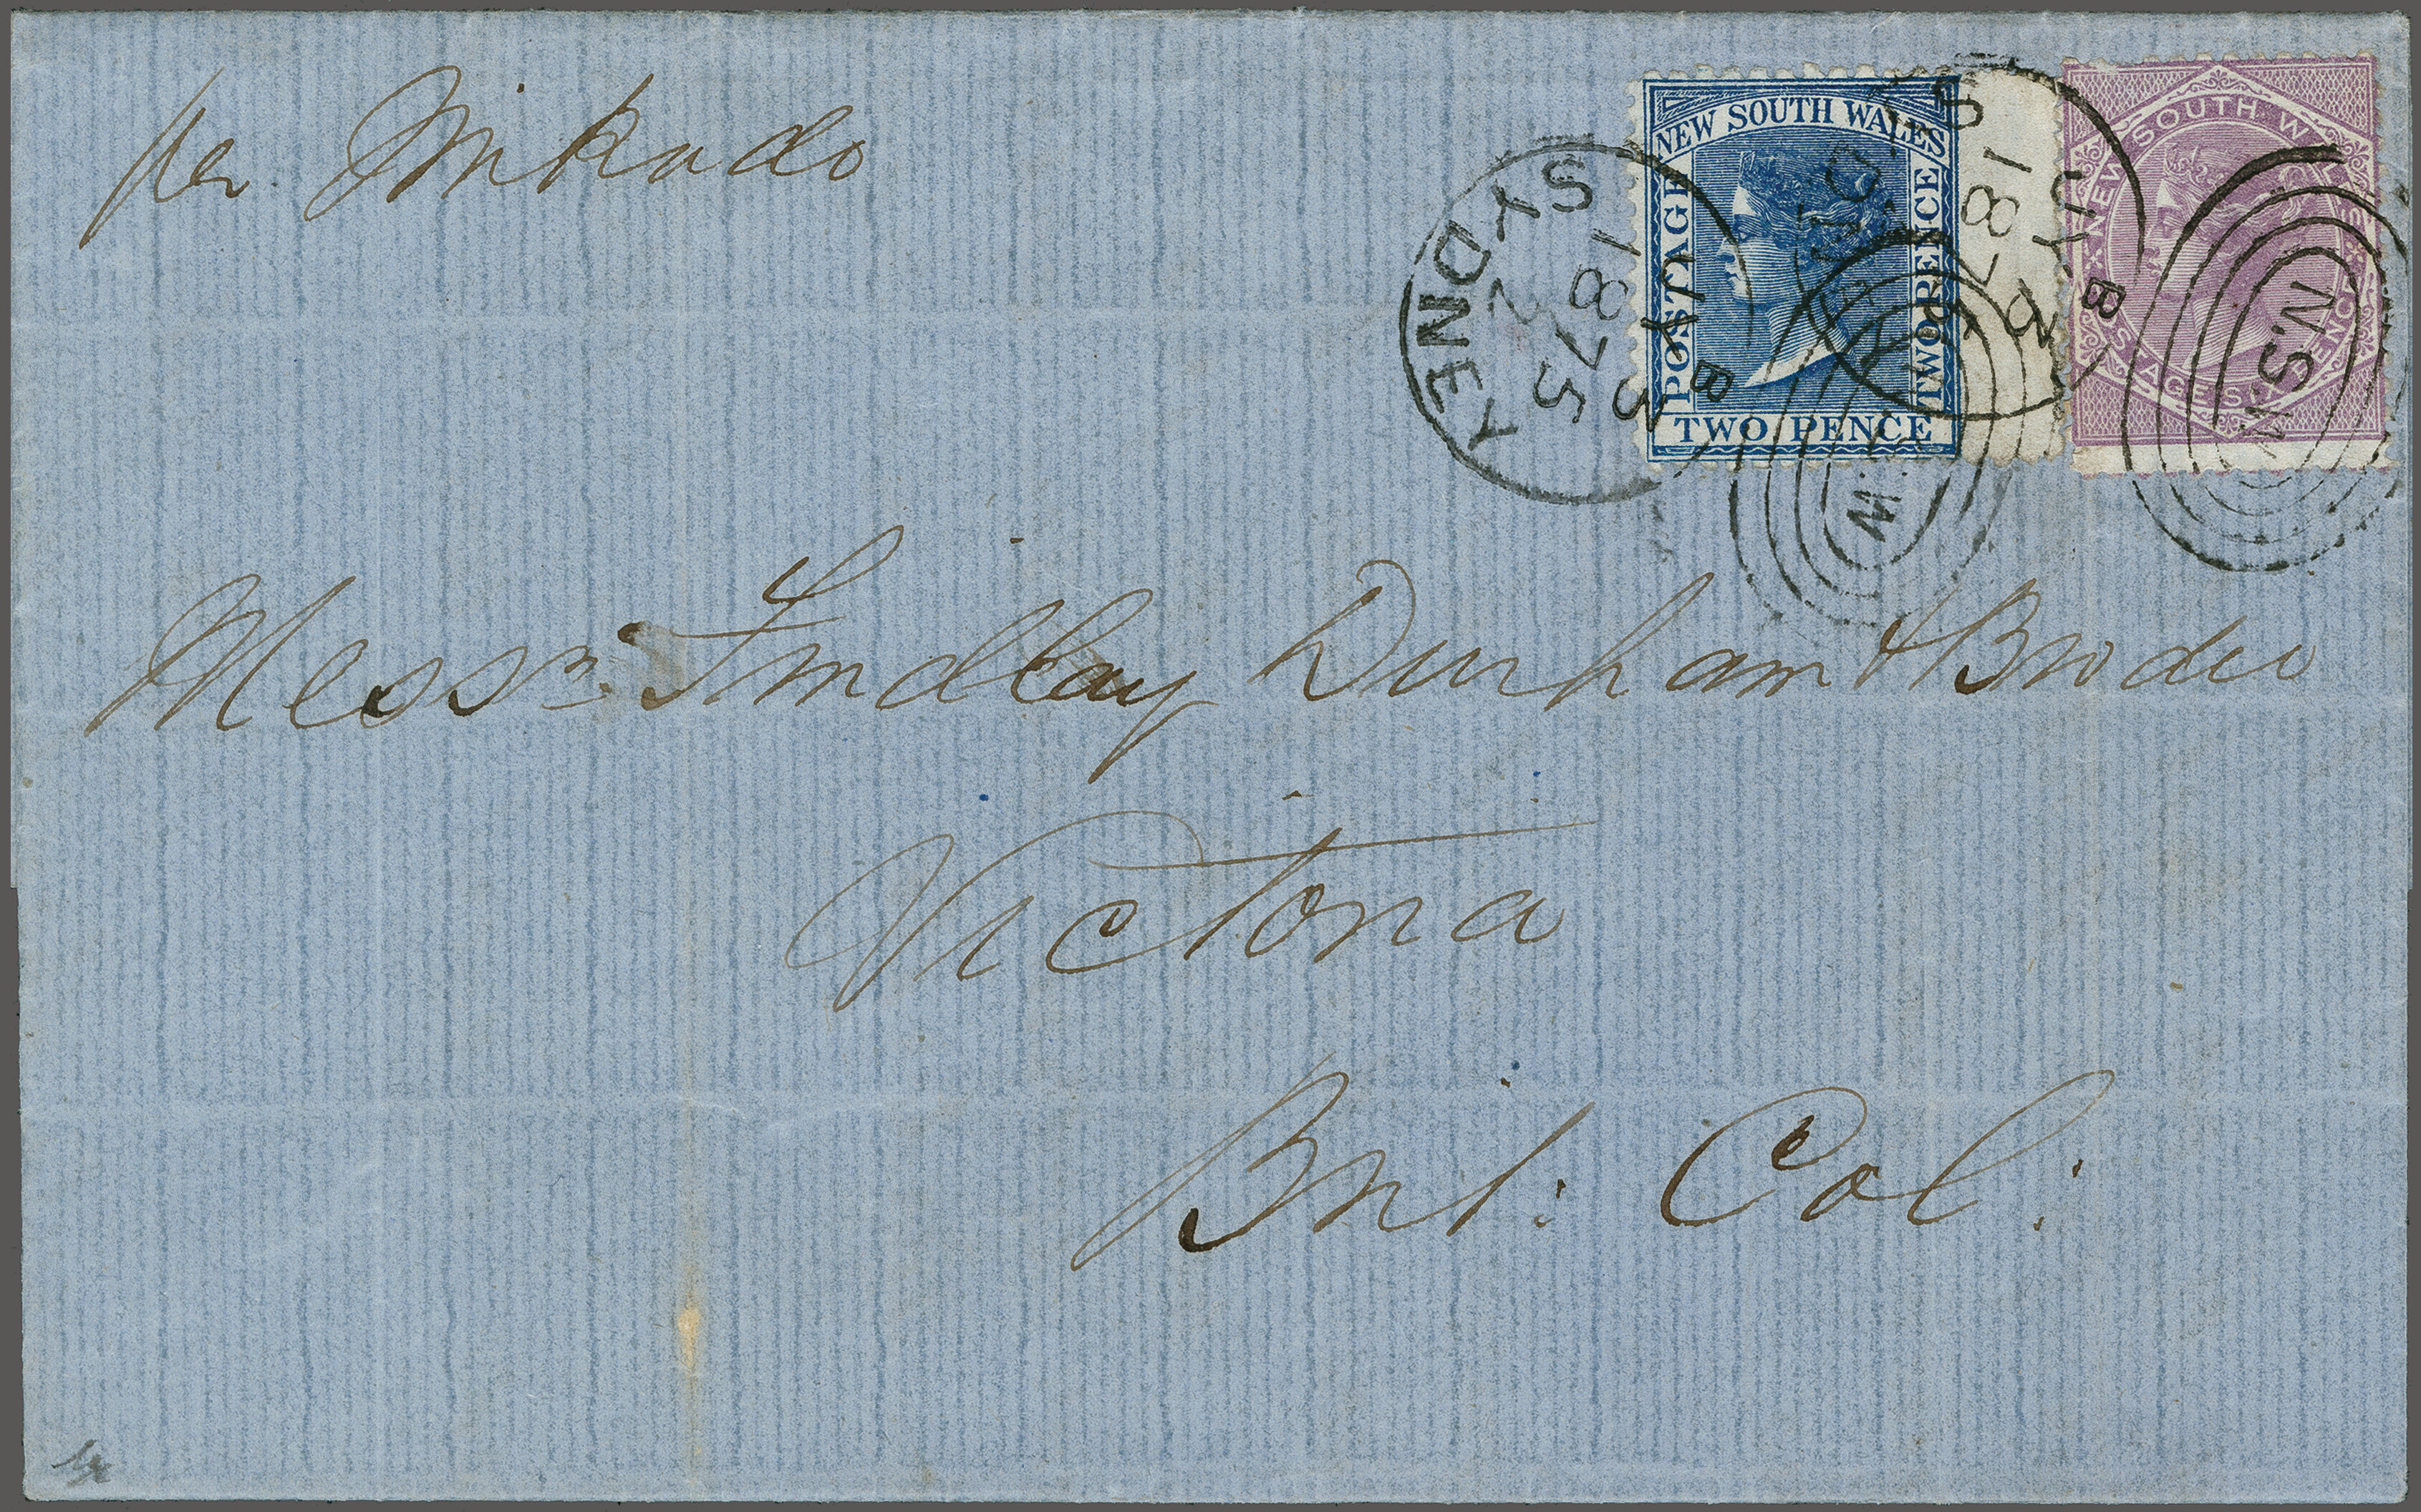 per Mikado
NEW SOUTH WALES
POSTAGE
TWO PENCE
TWO PENCE
NEW SOUTH WALES
POSTAGE SIX PENCE
SYDNEY
MY 3
1875
2
B
N.S.W
N.S.W
Messrs. Findlay Durham & Brodie
Victoria
Brit: Col: